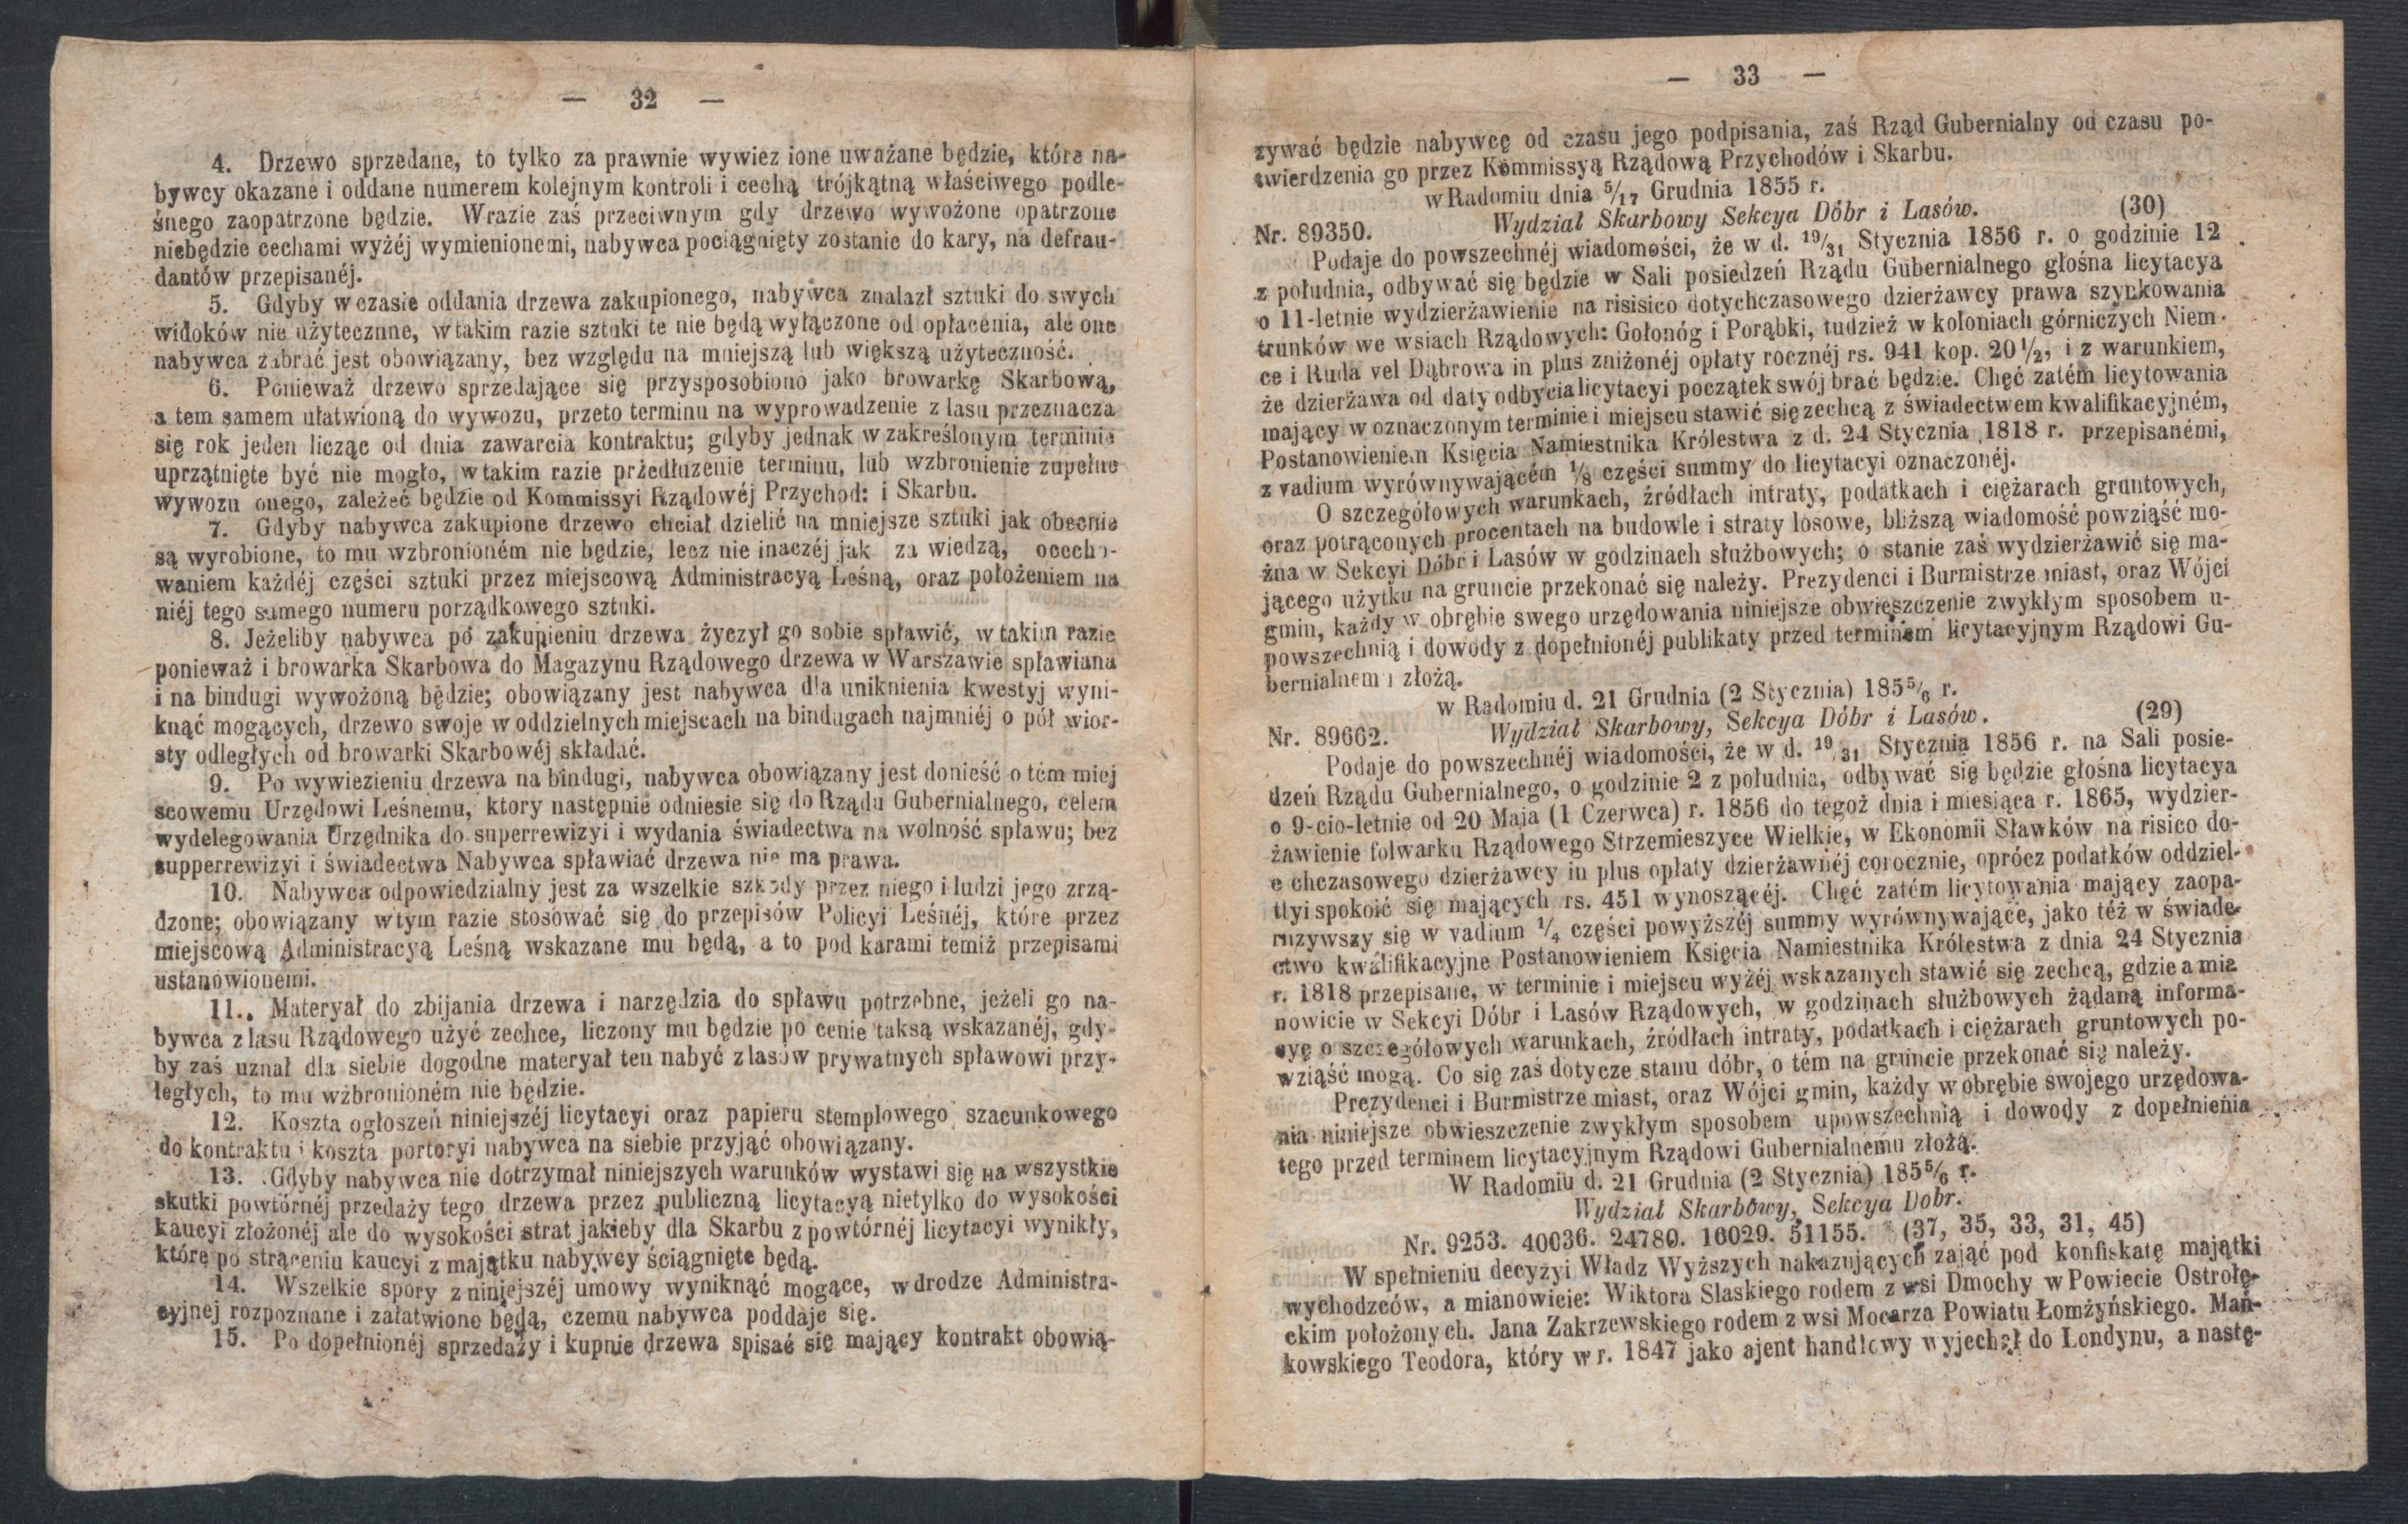 — 32 —
4. Drzewo sprzedane, to tylko za prawnie wywiez ione uważane będzie, które na-
bywcy okazane i oddane numerem kolejnym kontroli i cechą trójkątną właściwego podle-
śnego zaopatrzone będzie. Wrazie zaś przeciwnym gdy drzewo wywożone opatrzone
niebędzie cechami wyżéj wymienionemi, nabywca pociągnięty zostanie do kary, na defrau-
dantów przepisanéj.
5. Gdyby w czasie oddania drzewa zakupionego, nabywca znalazł sztuki do swych
widoków nie użytecznne, w takim razie sztuki te nie będą wyłączone od opłacenia, ale one
nabywca zabrać jest obowiązany, bez względu na mniejszą lub większą użyteczność.
6. Ponieważ drzewo sprzedające się przysposobiono jako browarkę Skarbową,
a tem samem ułatwioną do wywozu, przeto terminu na wyprowadzenie z lasu przeznacza
się rok jeden licząc od dnia zawarcia kontraktu; gdyby jednak w zakreślonym terminie
uprzątnięte być nie mogło, w takim razie przedłuzenie terminu, lub wzbronienie zupełne
wywozu onego, zależeć będzie od Kommissyi Rządowéj Przychod: i Skarbu.
7. Gdyby nabywca zakupione drzewo chciał dzielić na mniejsze sztuki jak obecnie
są wyrobione, to mu wzbronioném nie będzie, lecz nie inaczéj jak za wiedzą, ocecho-
waniem każdéj części sztuki przez miejscową Administracyą Leśną, oraz położeniem na
niéj tego samego numeru porządkowego sztuki.
8. Jeżeliby nabywca po zakupieniu drzewa życzył go sobie spławić, w takim razie
ponieważ i browarka Skarbowa do Magazynu Rządowego drzewa w Warszawie spławiana
i na bindugi wywożoną będzie; obowiązany jest nabywca dla uniknienia kwestyj wyni-
knąć mogących, drzewo swoje w oddzielnych miejscach na bindugach najmniéj o pół wior-
sty odległych od browarki Skarbowéj składać.
9. Po wywiezieniu drzewa na bindugi, nabywca obowiązany jest donieść o tém miej
scowemu Urzędowi Leśnemu, ktory następnie odniesie się do Rządu Gubernialnego, celem
wydelegowania Urzędnika do superrewizyi i wydania świadectwa na wolność spławu; bez
supperrewizyi i świadectwa Nabywca spławiać drzewa nie ma prawa.
10. Nabywca odpowiedzialny jest za wszelkie szkody przez niego i ludzi jego zrzą-
dzone; obowiązany w tym razie stosować się do przepisów Policyi Leśnéj, które przez
miejscową Administracyą Leśną wskazane mu będą, a to pod karami temiż przepisami
ustanowionemi.
11. Materyał do zbijania drzewa i narzędzia do spławu potrzebne, jeżeli go na-
bywca z lasu Rządowego użyć zechce, liczony mu będzie po cenie taksą wskazanéj, gdy-
by zaś uznał dla siebie dogodne materyał ten nabyć z lasów prywatnych spławowi przy-
ległych, to mu wzbronioném nie będzie.
12. Koszta ogłoszeń niniejszéj licytacyi oraz papieru stemplowego szacunkowego
do kontraktu i koszta portoryi nabywca na siebie przyjąć obowiązany.
13. Gdyby nabywca nie dotrzymał niniejszych warunków wystawi się na wszystkie
skutki powtórnéj przedaży tego drzewa przez publiczną licytacyą nietylko do wysokości
kaucyi złożonéj ale do wysokości strat jakieby dla Skarbu z powtórnéj licytacyi wynikły,
które po strąceniu kaucyi z majątku nabywcy ściągnięte będą.
14. Wszelkie spory z niniejszéj umowy wyniknąć mogące, w drodze Administra-
cyjnej rozpoznane i załatwione będą, czemu nabywca poddaje się.
15. Po dopełnionéj sprzedaży i kupnie drzewa spisać się mający kontrakt obowią-
— 33 —
zywać będzie nabywcę od czasu jego podpisania, zaś Rząd Gubernialny od czasu po-
twierdzenia go przez Kommissyą Rządową Przychodów i Skarbu.
w Radomiu dnia 5/17 Grudnia 1855 r.
Wydział Skarbowy Sekcya Dóbr i Lasów.
Nr. 89350. (30)
Podaje do powszechnéj wiadomości, że w d. 19/31 Stycznia 1856 r. o godzinie 12
z południa, odbywać się będzie w Sali posiedzeń Rządu Gubernialnego głośna licytacya
o 11-letnie wydzierżawienie na risisico dotychczasowego dzierżawcy prawa szynkowania
trunków we wsiach Rządowych: Gołonóg i Porąbki, tudzież w koloniach górniczych Niem-
ce i Ruda vel Dąbrowa in plus zniżonéj opłaty rocznéj rs. 941 kop. 20 1/2, i z warunkiem,
że dzierżawa od daty odbycia licytacyi początek swój brać będzie. Chęć zatém licytowania
mający w oznaczonym terminie i miejscu stawić się zechcą z świadectwem kwalifikacyjném,
Postanowieniem Księcia Namiestnika Królestwa z d. 24 Stycznia 1818 r. przepisanémi,
z vadium wyrównywającém 1/8 części summy do licytacyi oznaczonéj.
O szczegółowych warunkach, źródłach intraty, podatkach i ciężarach gruntowych,
oraz potrąconych procentach na budowle i straty losowe, bliższą wiadomość powziąść mo-
żna w Sekcyi Dóbr i Lasów w godzinach służbowych; o stanie zaś wydzierżawić się ma-
jącego użytku na gruncie przekonać się należy. Prezydenci i Burmistrze miast, oraz Wójci
gmin, każdy w obrębie swego urzędowania niniejsze obwieszczenie zwykłym sposobem u-
powszechnią i dowody z dopełnionéj publikaty przed terminem licytacyjnym Rządowi Gu-
bernialnemu złożą.
w Radomiu d. 21 Grudnia (2 Stycznia) 185 5/6 r.
Wydział Skarbowy, Sekcya Dóbr i Lasów.
Nr. 89662. (29)
Podaje do powszechnéj wiadomości, że w d. 19/31 Stycznia 1856 r. na Sali posie-
dzeń Rządu Gubernialnego, o godzinie 2 z południa, odbywać się będzie głośna licytacya
o 9-cio-letnie od 20 Maja (1 Czerwca) r. 1856 do tegoż dnia i miesiąca r. 1865, wydzier-
żawienie folwarku Rządowego Strzemieszyce Wielkie, w Ekonomii Sławków na risico do-
e chczasowego dzierżawcy in plus opłaty dzierżawnéj corocznie, oprócz podatków oddziel-
ttyi spokoić się mających rs. 451 wynoszącéj. Chęć zatém licytowania mający zaopa-
rnzywszy się w vadium 1/4 części powyższéj summy wyrównywające, jako też w świade-
ctwo kwalifikacyjne Postanowieniem Księcia Namiestnika Królestwa z dnia 24 Stycznia
r. 1818 przepisane, w terminie i miejscu wyżéj wskazanych stawić się zechcą, gdzie a mia
nowicie w Sekcyi Dóbr i Lasów Rządowych, w godzinach służbowych żądaną informa-
cyę o szczegółowych warunkach, źródłach intraty, podatkach i ciężarach gruntowych po-
wziąść mogą. Co się zaś dotycze stanu dóbr, o tém na gruncie przekonać się należy.
Prezydenci i Burmistrze miast, oraz Wójci gmin, każdy w obrębie swojego urzędowa-
nia niniejsze obwieszczenie zwykłym sposobem upowszechnią i dowody z dopełnienia
tego przed terminem licytacyjnym Rządowi Gubernialnemu złożą.
W Radomiu d. 21 Grudnia (2 Stycznia) 185 5/6 r.
Wydział Skarbowy, Sekcya Dobr.
Nr. 9253. 40036. 24780. 16029. 51155. (37, 35, 33, 31, 45)
W spełnieniu decyzyi Władz Wyższych nakazujących zająć pod konfiskatę majątki
wychodzców, a mianowicie: Wiktora Slaskiego rodem z wsi Dmochy w Powiecie Ostrołę-
ckim położonych. Jana Zakrzewskiego rodem z wsi Mocarza Powiatu Łomżyńskiego. Mań-
kowskiego Teodora, który w r. 1847 jako ajent handlowy wyjechał do Londynu, a nastę-